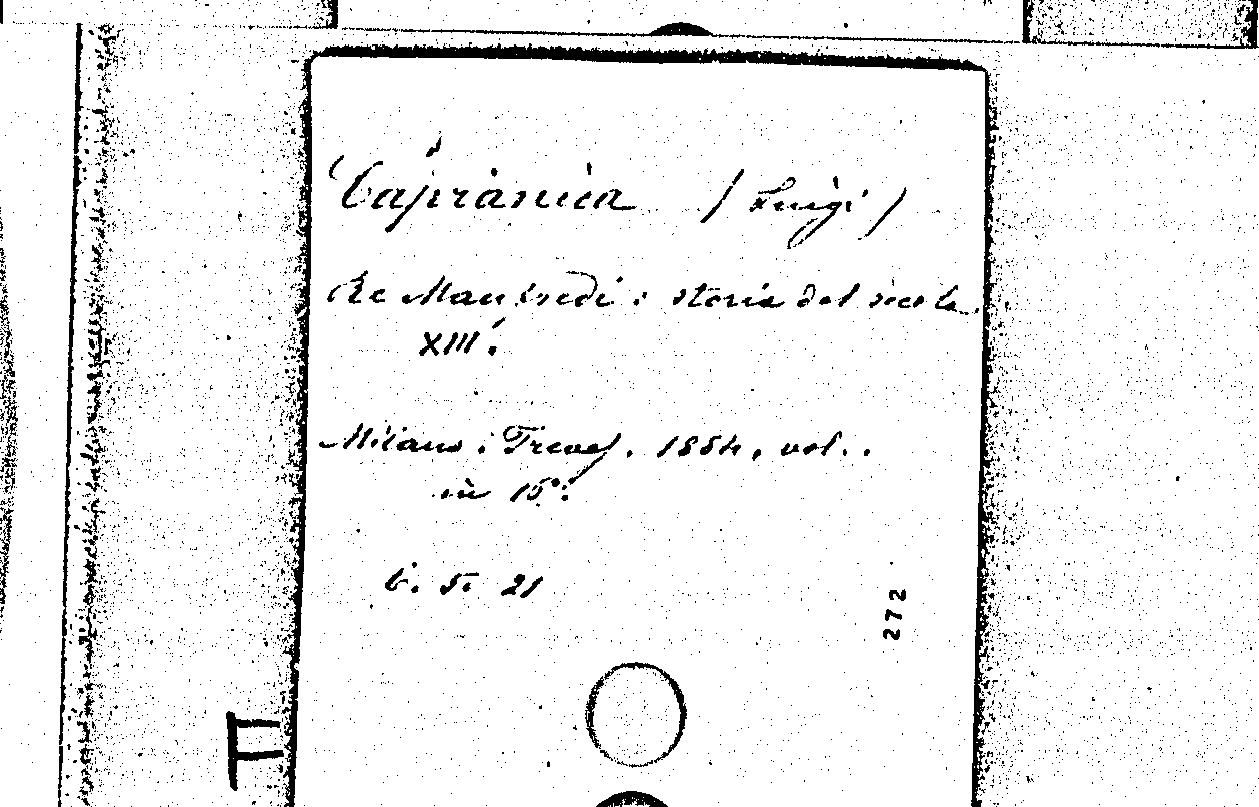 Capranica (Luigi)
Re Manfredi: storia del secolo
XIII.
Milano: Treves. 1884, vol..
in 15°:
6. 5. 21
272